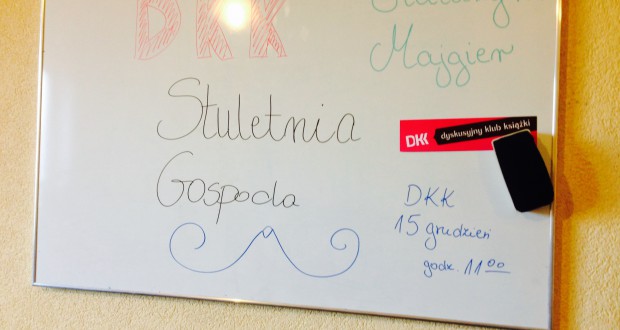 DKK
Majgier
Stuletnia
Gospoda
DKK dyskusyjny klub książki
DKK
15 grudzień
godz. 11⁰⁰